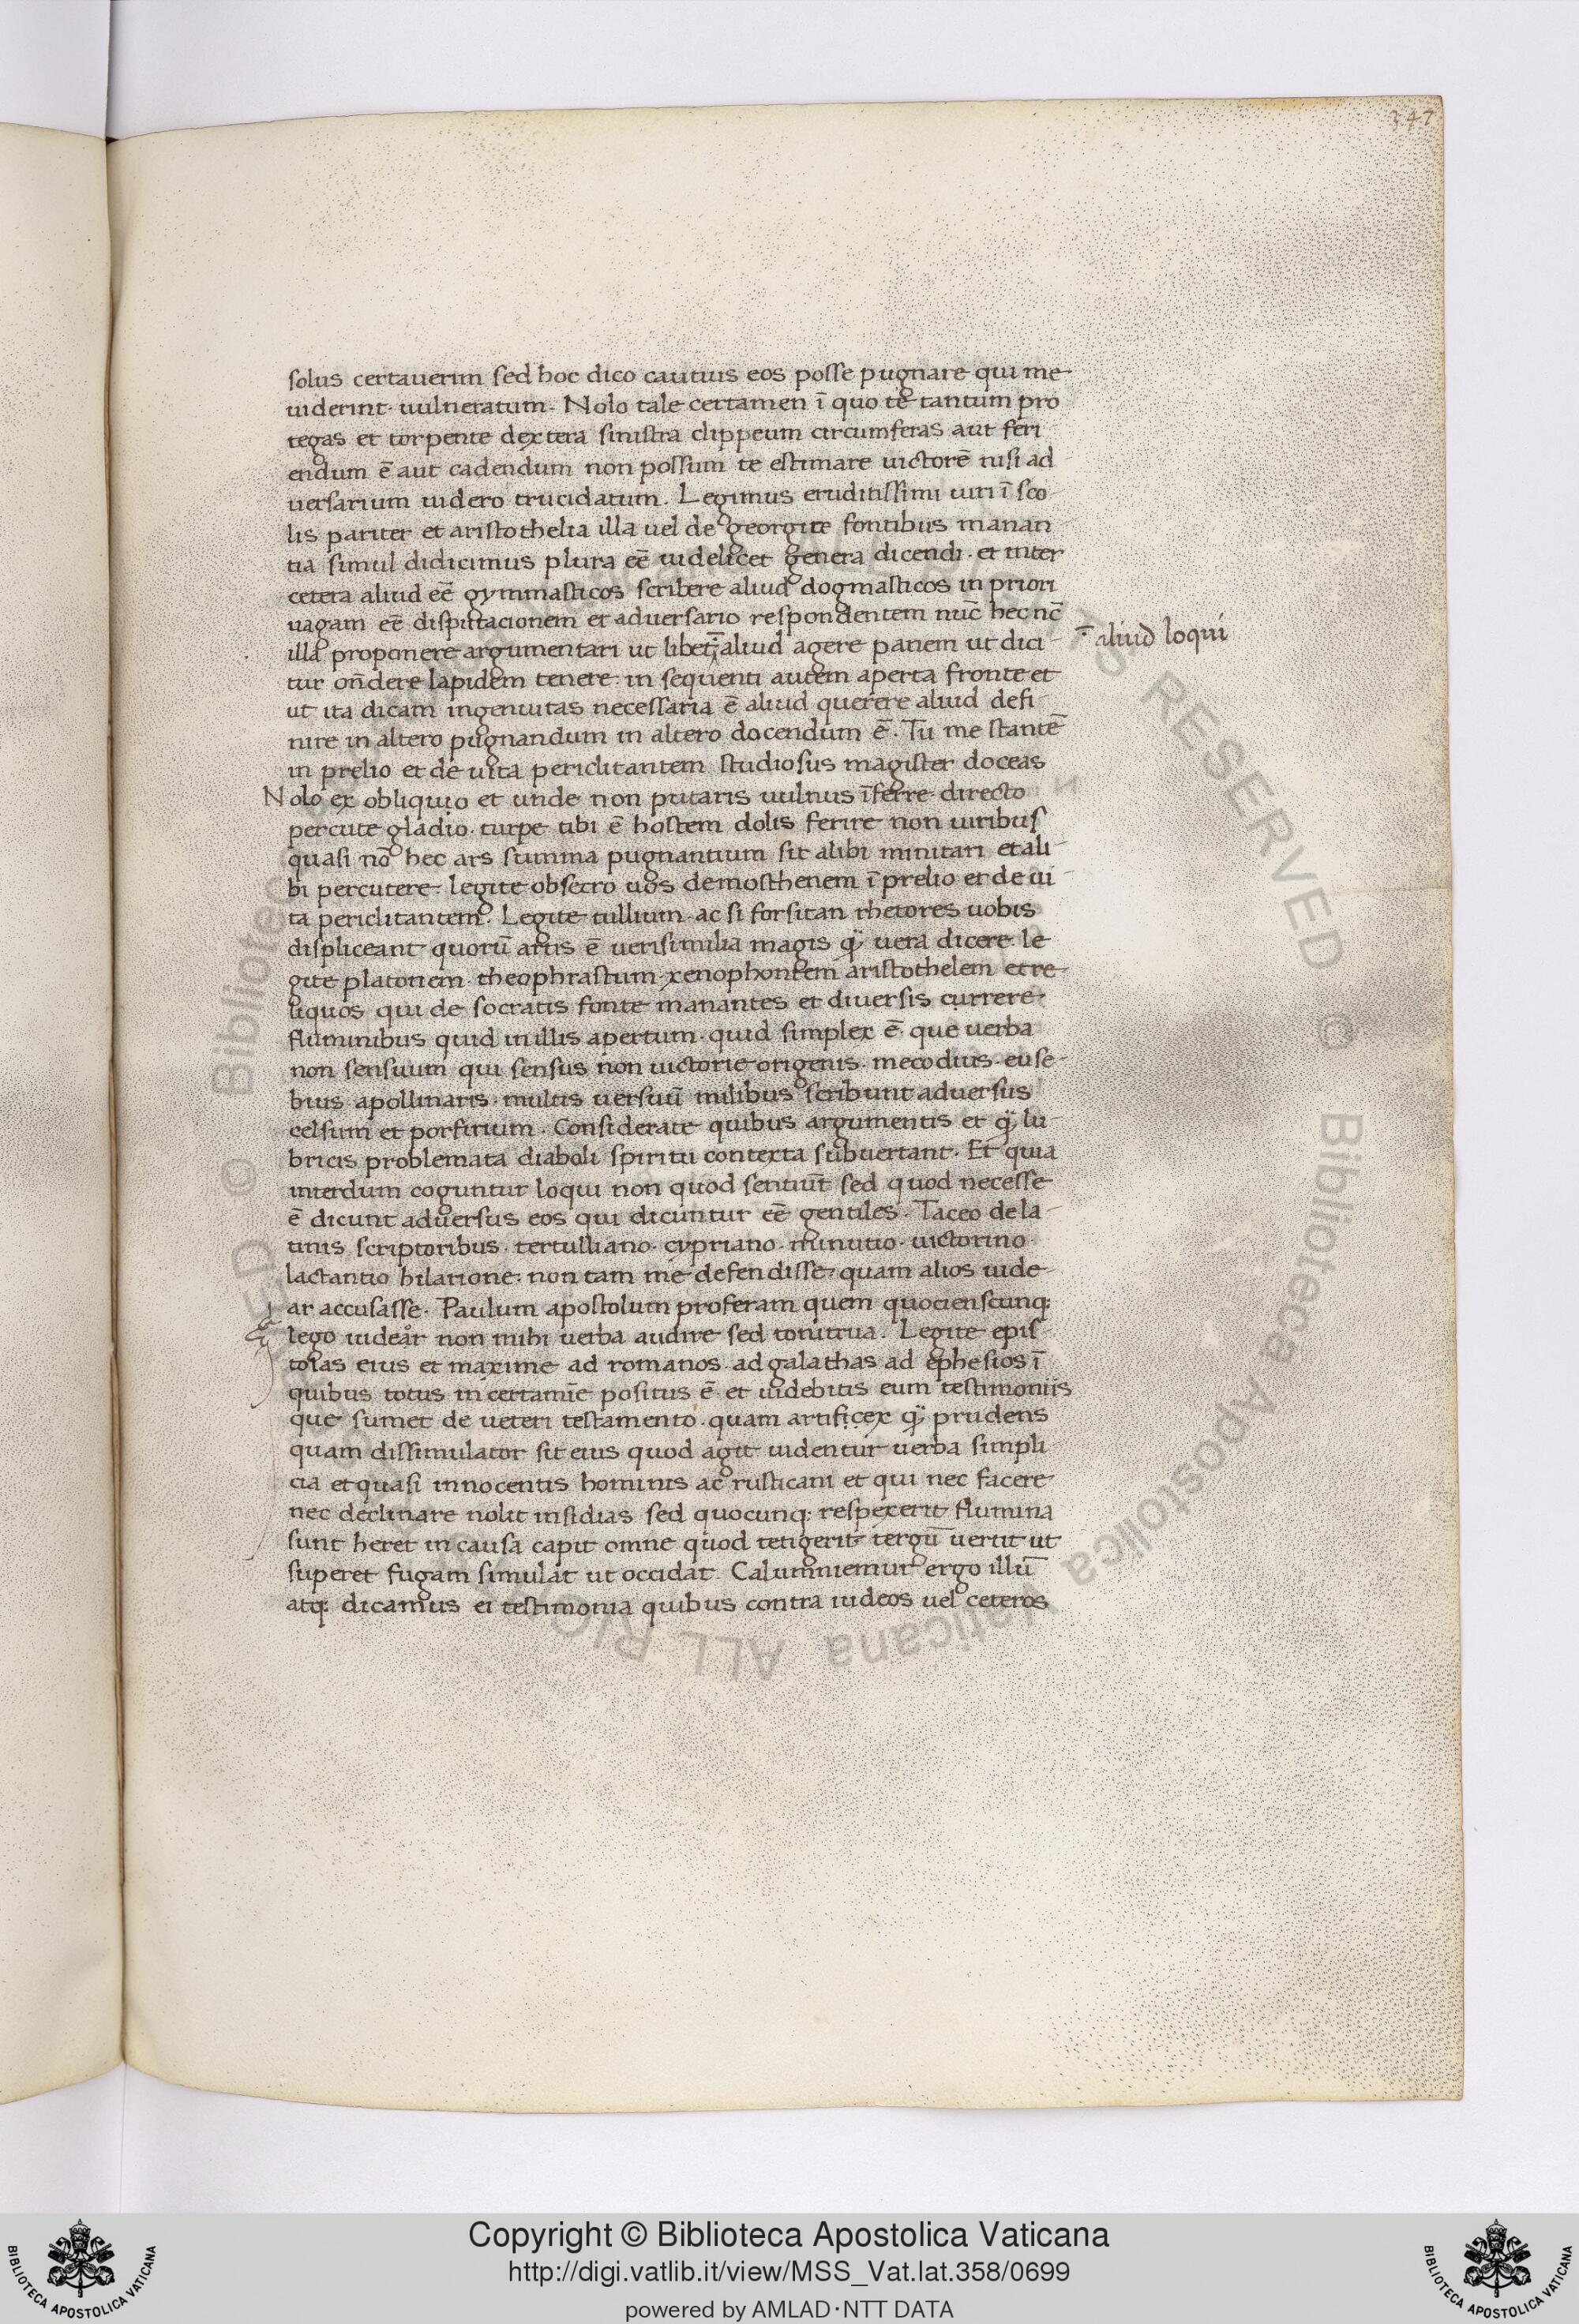 347
solus certauerim sed hoc dico cautius eos posse pugnare qui me
uiderint· uulneratum· Nolo tale certamen ī quo te tantum pro
tegas et torpente dextera sinistra clippeum circumferas aut feri
endum ē aut cadendum non possum te estimare uictorē nisi ad
uersarium uidero trucidatum. Legimus eruditissimi uiri ī sco
lis pariter et aristothelia illa uel de georgire fontibus manan
tia simul didicimus plura eē uidelicet genera dicendi· et inter
cetera aliud eē gymnasticos scribere aliud dogmasticos in priori
uagam eē disputacionem et aduersario respondentem nūc hec nc̄
illa proponere argumentari ut libet aliud agere panem ut dici
aliud loqui
tur on̄dere lapidem tenere: in sequenti autem aperta fronte et
ut ita dicam ingenuitas necessaria ē aliud querere aliud defi
nire in altero pugnandum in altero docendum ē· Tu me stantē
in prelio et de uita periclitantem studiosus magister doceas
Nolo ex obliquio et unde non putaris uulnus īferre directo
percute gladio· turpe tibi ē hostem dolis ferire non uiribus
quasi nō hec ars summa pugnantium sit alibi minitari et ali
bi percutere· legite obsecro uos demosthenem ī prelio et de ui
ta periclitantem· Legite tullium· ac si forsitan rhetores uobis
displiceant quorū artis ē uerisimilia magis q̈ uera dicere· le
gite platonem· theophrastum· xenophontem aristothelem et re
liquos qui de socratis fonte manantes et diuersis currere
fluminibus quid in illis apertum· quid simplex ē· que uerba
non sensuum qui sensus non uictorie origenis· mecodius· euse
bius apollinaris· multis uersuū milibus scribunt aduersus
celsum et porfirium· Considerate quibus argumentis et q̈ lu
bricis problemata diaboli spiritu contexta subuertant· Et quia
interdum coguntur loqui non quod sentiūt sed quod necesse
ē dicunt aduersus eos qui dicuntur eē gentiles· Taceo de la
tinis scriptoribus· tertulliano· cypriano· minutio· uictorino·
lactantio hilarione: non tam me defendisse· quam alios uide
ar accusasse· Paulum apostolum proferam quem quocienscunq:
lego uidear non mihi uerba audire sed tonitrua· Legite epis
tolas eius et maxime ad romanos· ad galathas ad ephesios ī
quibus totus in certamīe positus ē· et uidebitis eum testimoniis
que sumet de ueteri testamento· quam artificex q̈ prudens
quam dissimulator sit eius quod agit uidentur uerba simpli
cia et quasi innocentis hominis ac rusticani et qui nec facere
nec declinare nolit insidias sed quocunq: respexerit flumina
sunt heret in causa capit omne quod tetigerit tergū uertit ut
superet fugam simulat ut occidat· Calumniemur ergo illū
atq: dicamus ei testimonia quibus contra iudeos uel ceteros
Copyright © Biblioteca Apostolica Vaticana
http://digi.vatlib.it/view/MSS_Vat.lat.358/0699
powered by AMLAD·NTT DATA
BIBLIOTECA APOSTOLICA VATICANA
BIBLIOTECA APOSTOLICA VATICANA